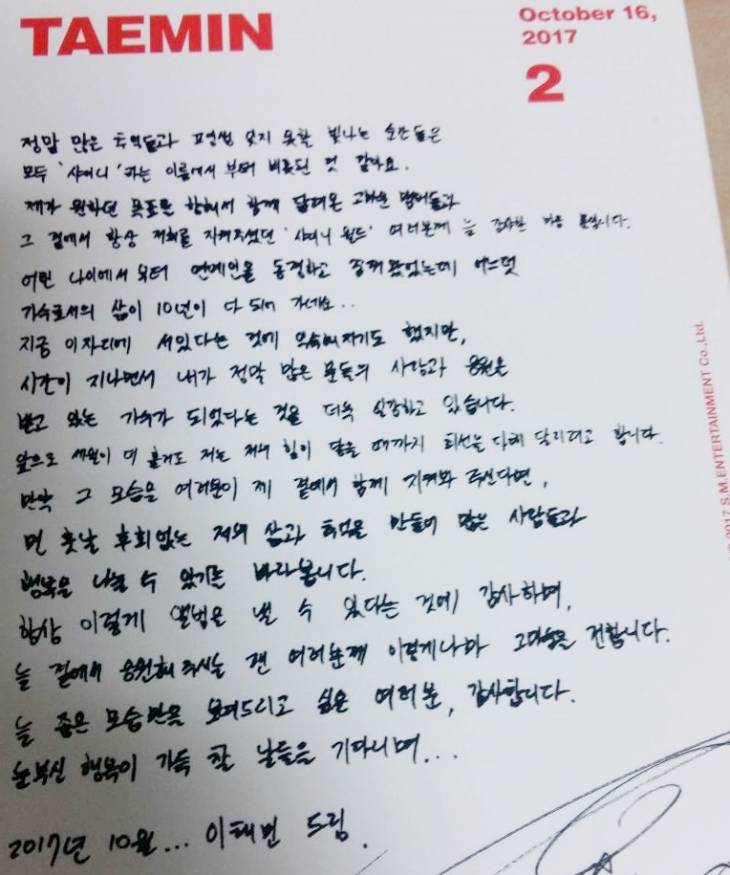 TAEMIN
October 16,
2017
2
정말 많은 추억들과 평생 잊지 못할 빛나는 순간들은
모두 '샤이니'라는 이름에서부터 비롯된 것 같아요.
제가 원하던 목표를 향해서 함께 달려온 고마운 멤버들과
그 곁에서 항상 저희를 지켜주셨던 '샤이니 월드' 여러분께 늘 감사한 마음 뿐입니다.
어린 나이에서부터 연예인을 동경하고 좋아했었는데 어느덧
가수로서의 삶이 10년이 다 되어 가네요..
지금 이자리에 서있다는 것에 익숙해지기도 했지만,
시간이 지나면서 내가 정말 많은 분들의 사랑과 응원을
받고 있는 가수가 되었다는 것을 더욱 실감하고 있습니다.
앞으로 세월이 더 흘러도 저는 저의 힘이 닿을 때까지 최선을 다해 달리려고 합니다.
만약 그 모습을 여러분이 제 곁에서 함께 지켜봐 주신다면,
먼 훗날 후회없는 저의 삶과 추억을 만들어 많은 사람들과
행복을 나눌 수 있기를 바라봅니다.
항상 이렇게 앨범을 낼 수 있다는 것에 감사하며,
늘 곁에서 응원해주시는 팬 여러분께 이렇게나마 고마움을 전합니다.
늘 좋은 모습만을 보여드리고 싶은 여러분, 감사합니다.
눈부신 행복이 가득 할 날들을 기다리며...
2017년 10월... 이태민 드림.
2017 S.M.ENTERTAINMENT Co.,Ltd.